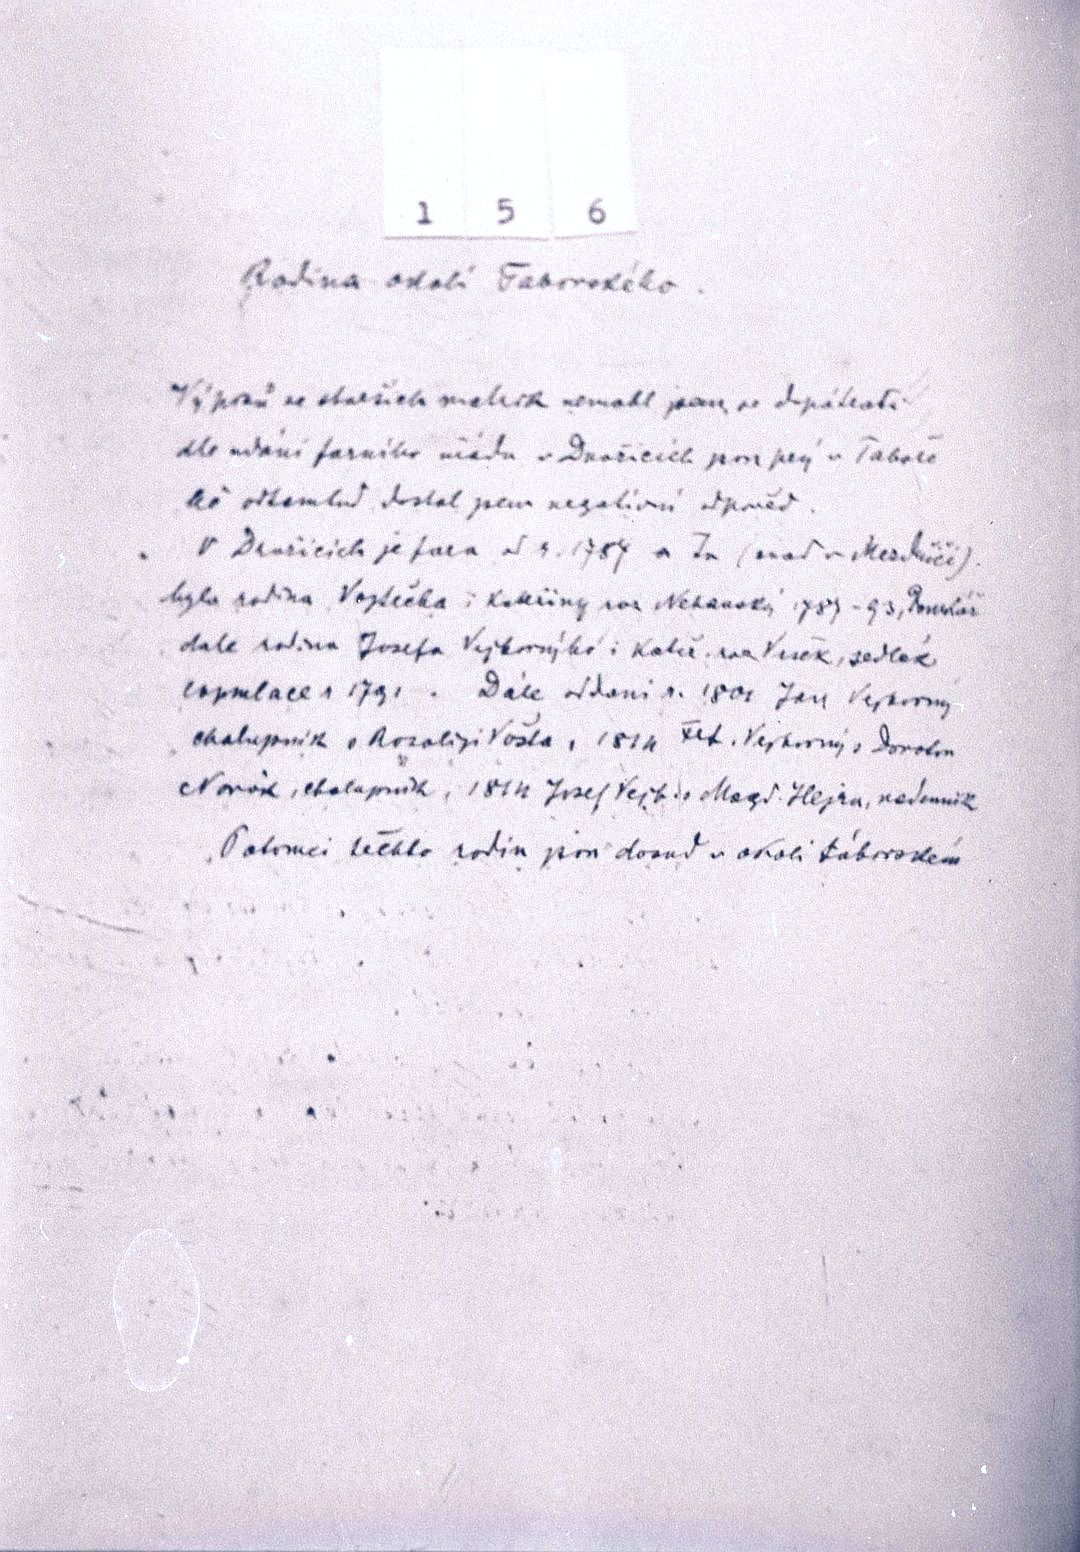 1 5 6
Rodina okolí Taborského.
Výpisů ze starších matrik nemohl jsem se dopátrati
dle udání farního úřadu v Dražicích jsou prý v Táboře
odtamtud dostal jsem negativní odpověď.
V Dražicích je fara od r. 1787 a (snad v Meziříčí).
byla rodina Vojtěcha i Kateřiny roz 1789-93,
dale rodina Josefa Vejborného i Kateř. roz Vrsek, sedlák
copulace r 1791. Dále oddani r. 1801 Jan Vejborný
chalupník s Rozalií Vošta, 1814 Vejborný s Dorotou
Novák, chalupník, 1814 Josef Vejb. s Magd. Hejna, nadenník
Potomci těchto rodin jsou dosud v okolí táborském